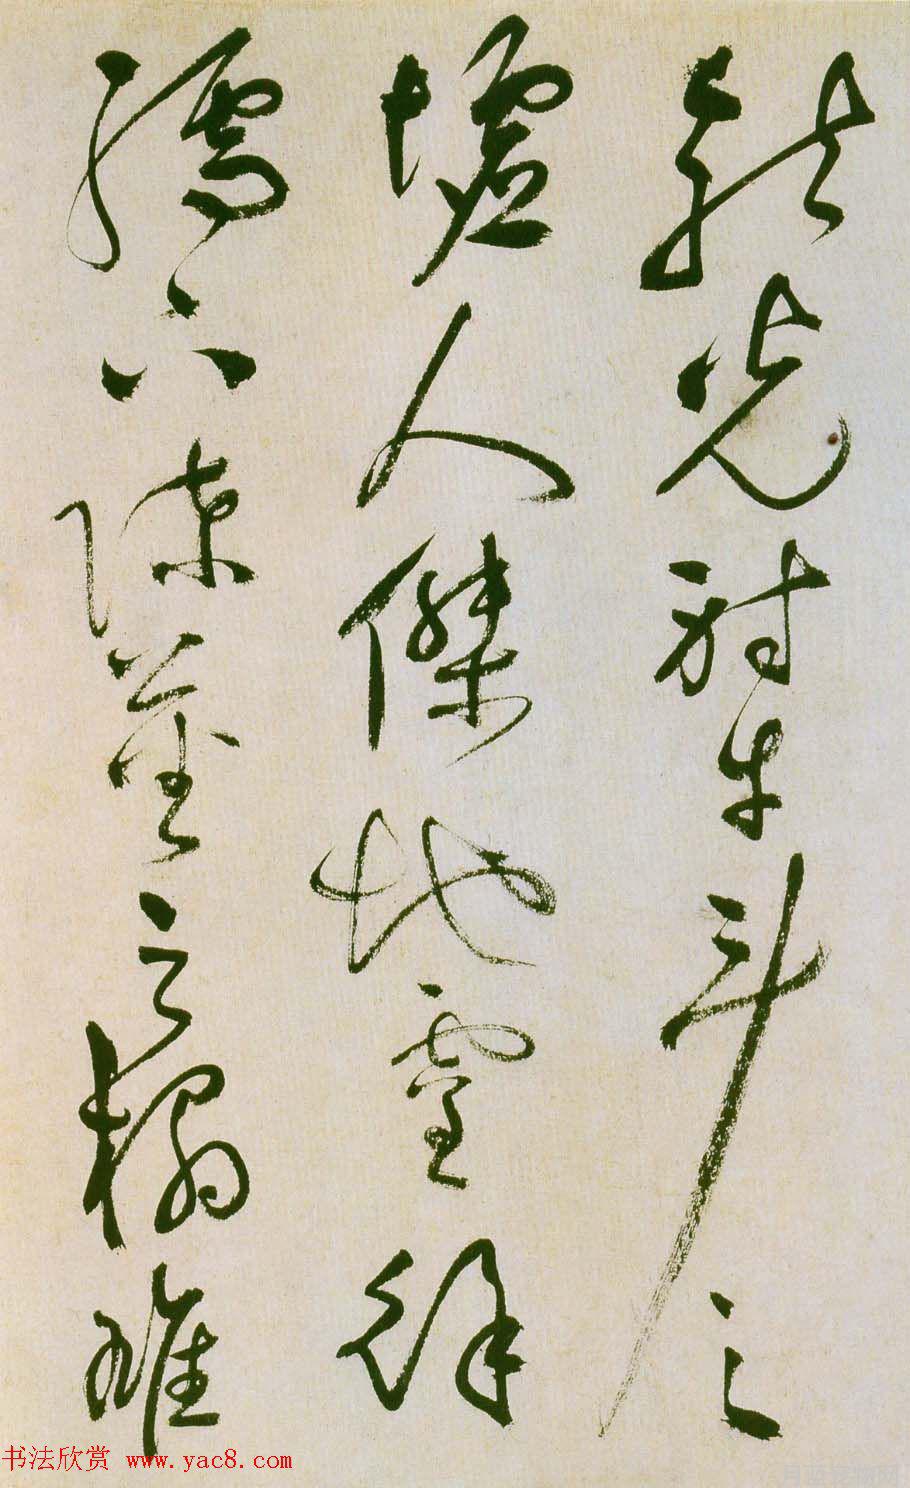 龍光射牛斗之
墟人傑地靈徐
孺下陳蕃之榻雄
书法欣赏 www.yac8.com